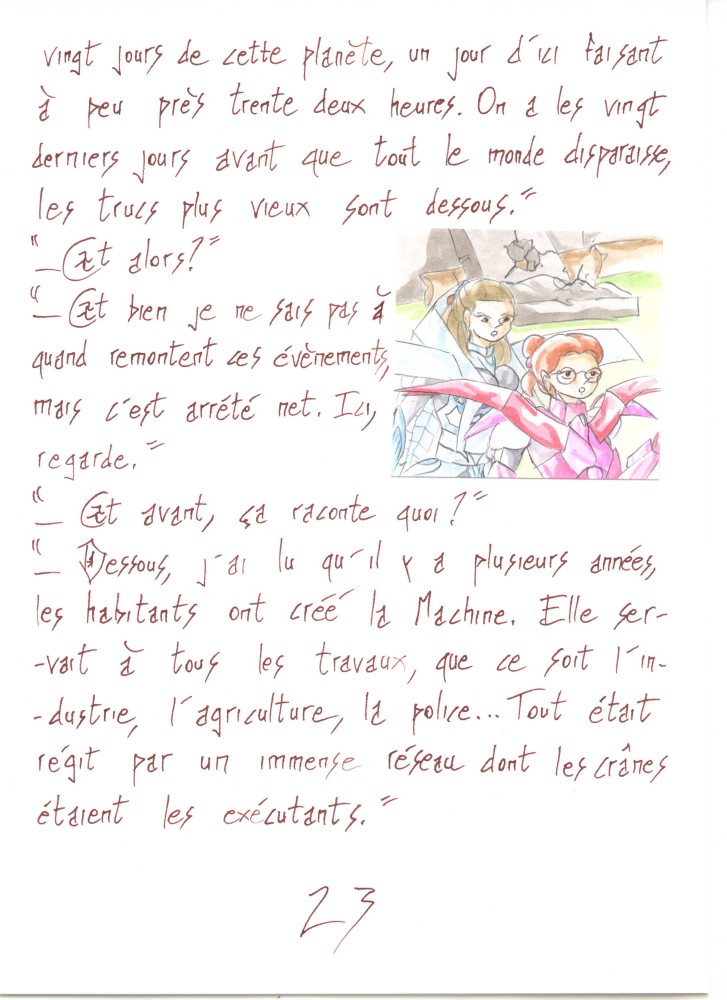 vingt jours de cette planète, un jour d'ici faisant
à peu près trente deux heures. On a les vingt
derniers jours avant que tout le monde disparaisse,
les trucs plus vieux sont dessous."
"_Et alors?"
"_Et bien je ne sais pas à
quand remontent ces évènements,
mais c'est arrété net. Ici,
regarde."
"_ Et avant, ça raconte quoi ?"
"_ Dessous, j'ai lu qu'il y a plusieurs années,
les habitants ont créé la Machine. Elle ser-
-vait à tous les travaux, que ce soit l'in-
-dustrie, l'agriculture, la police... Tout était
régit par un immense réseau dont les crânes
étaient les exécutants."
23